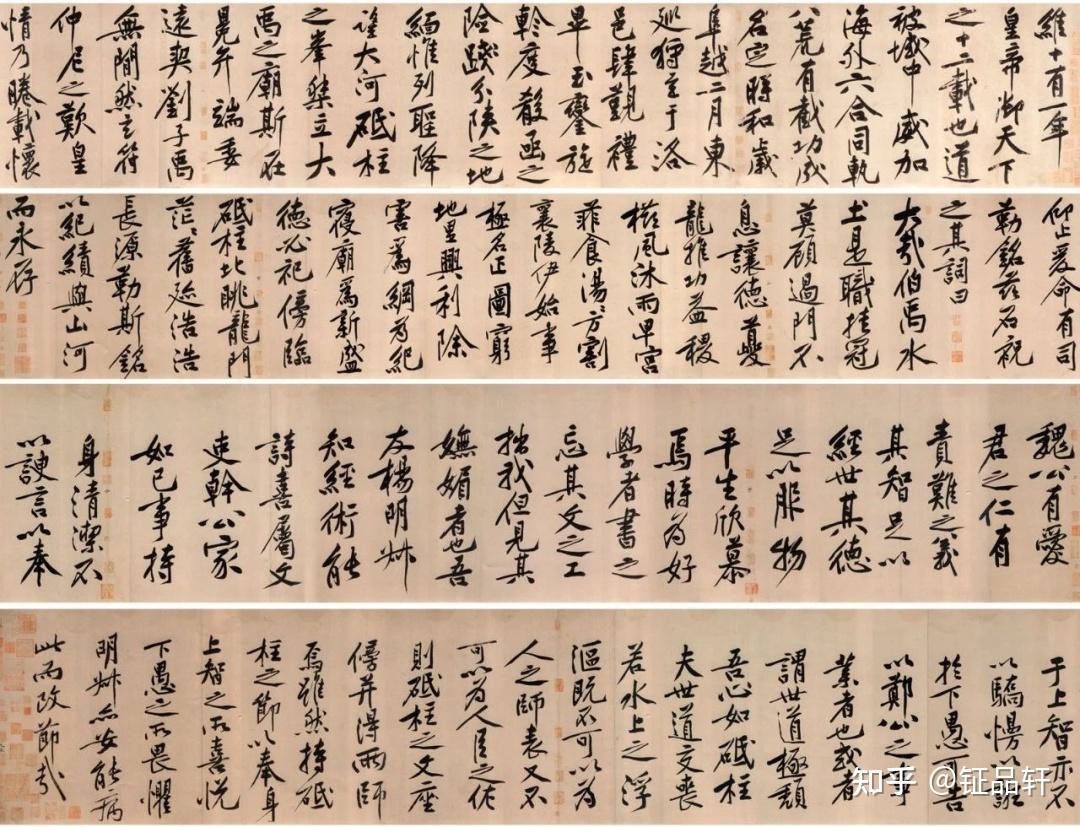 維十有一年
皇帝御天下
之十二載也道
被域中威加
海外六合同軌
八荒有截功成
名定時和歲
阜越二月東
巡狩至于洛
邑肆覲禮
畢玉鑾旋
軫度殽函之
險踐分陝之地
緬惟列聖降
望大河砥柱
之峯桀立大
禹之廟斯在
冕弁端委
遠契劉子禹
無閒然玄符
仲尼之歎皇
情乃睠載懷
仰止爰命有司
勒銘茲石祝
之其詞曰
大哉伯禹水
土是職挂冠
莫顧過門不
息讓德夔
龍推功益稷
櫛風沐雨卑宮
菲食湯湯方割
襄陵伊始事
極名正圖窮
地里興利除
害爲綱爲紀
寢廟爲新盛
德必祀傍臨
砥柱北眺龍門
茫茫舊迹浩浩
長源勒斯銘
以紀績與山河
而永存
魏公有愛
君之仁有
責難之義
其智足以
經世其德
足以服物
平生欣慕
焉時爲好
學者書之
忘其文之工
拙我但見其
嫵媚者也吾
友楊明叔
知經術能
詩喜屬文
吏幹公家
如己事持
身清潔不
以諛言以奉
于上智亦不
以驕慢以誑
於下愚可告
以鄭公之事
業者也或者
謂世道極頹
吾心如砥柱
夫世道交喪
若水上之浮
漚既不可以爲
人之師表又不
可以爲人臣之佐
則砥柱之文座
傍并得兩師
焉雖然持砥
柱之節以奉身
上智之所喜悅
下愚之所畏懼
明叔亦安能病
此而改節哉
知乎 @钲品轩